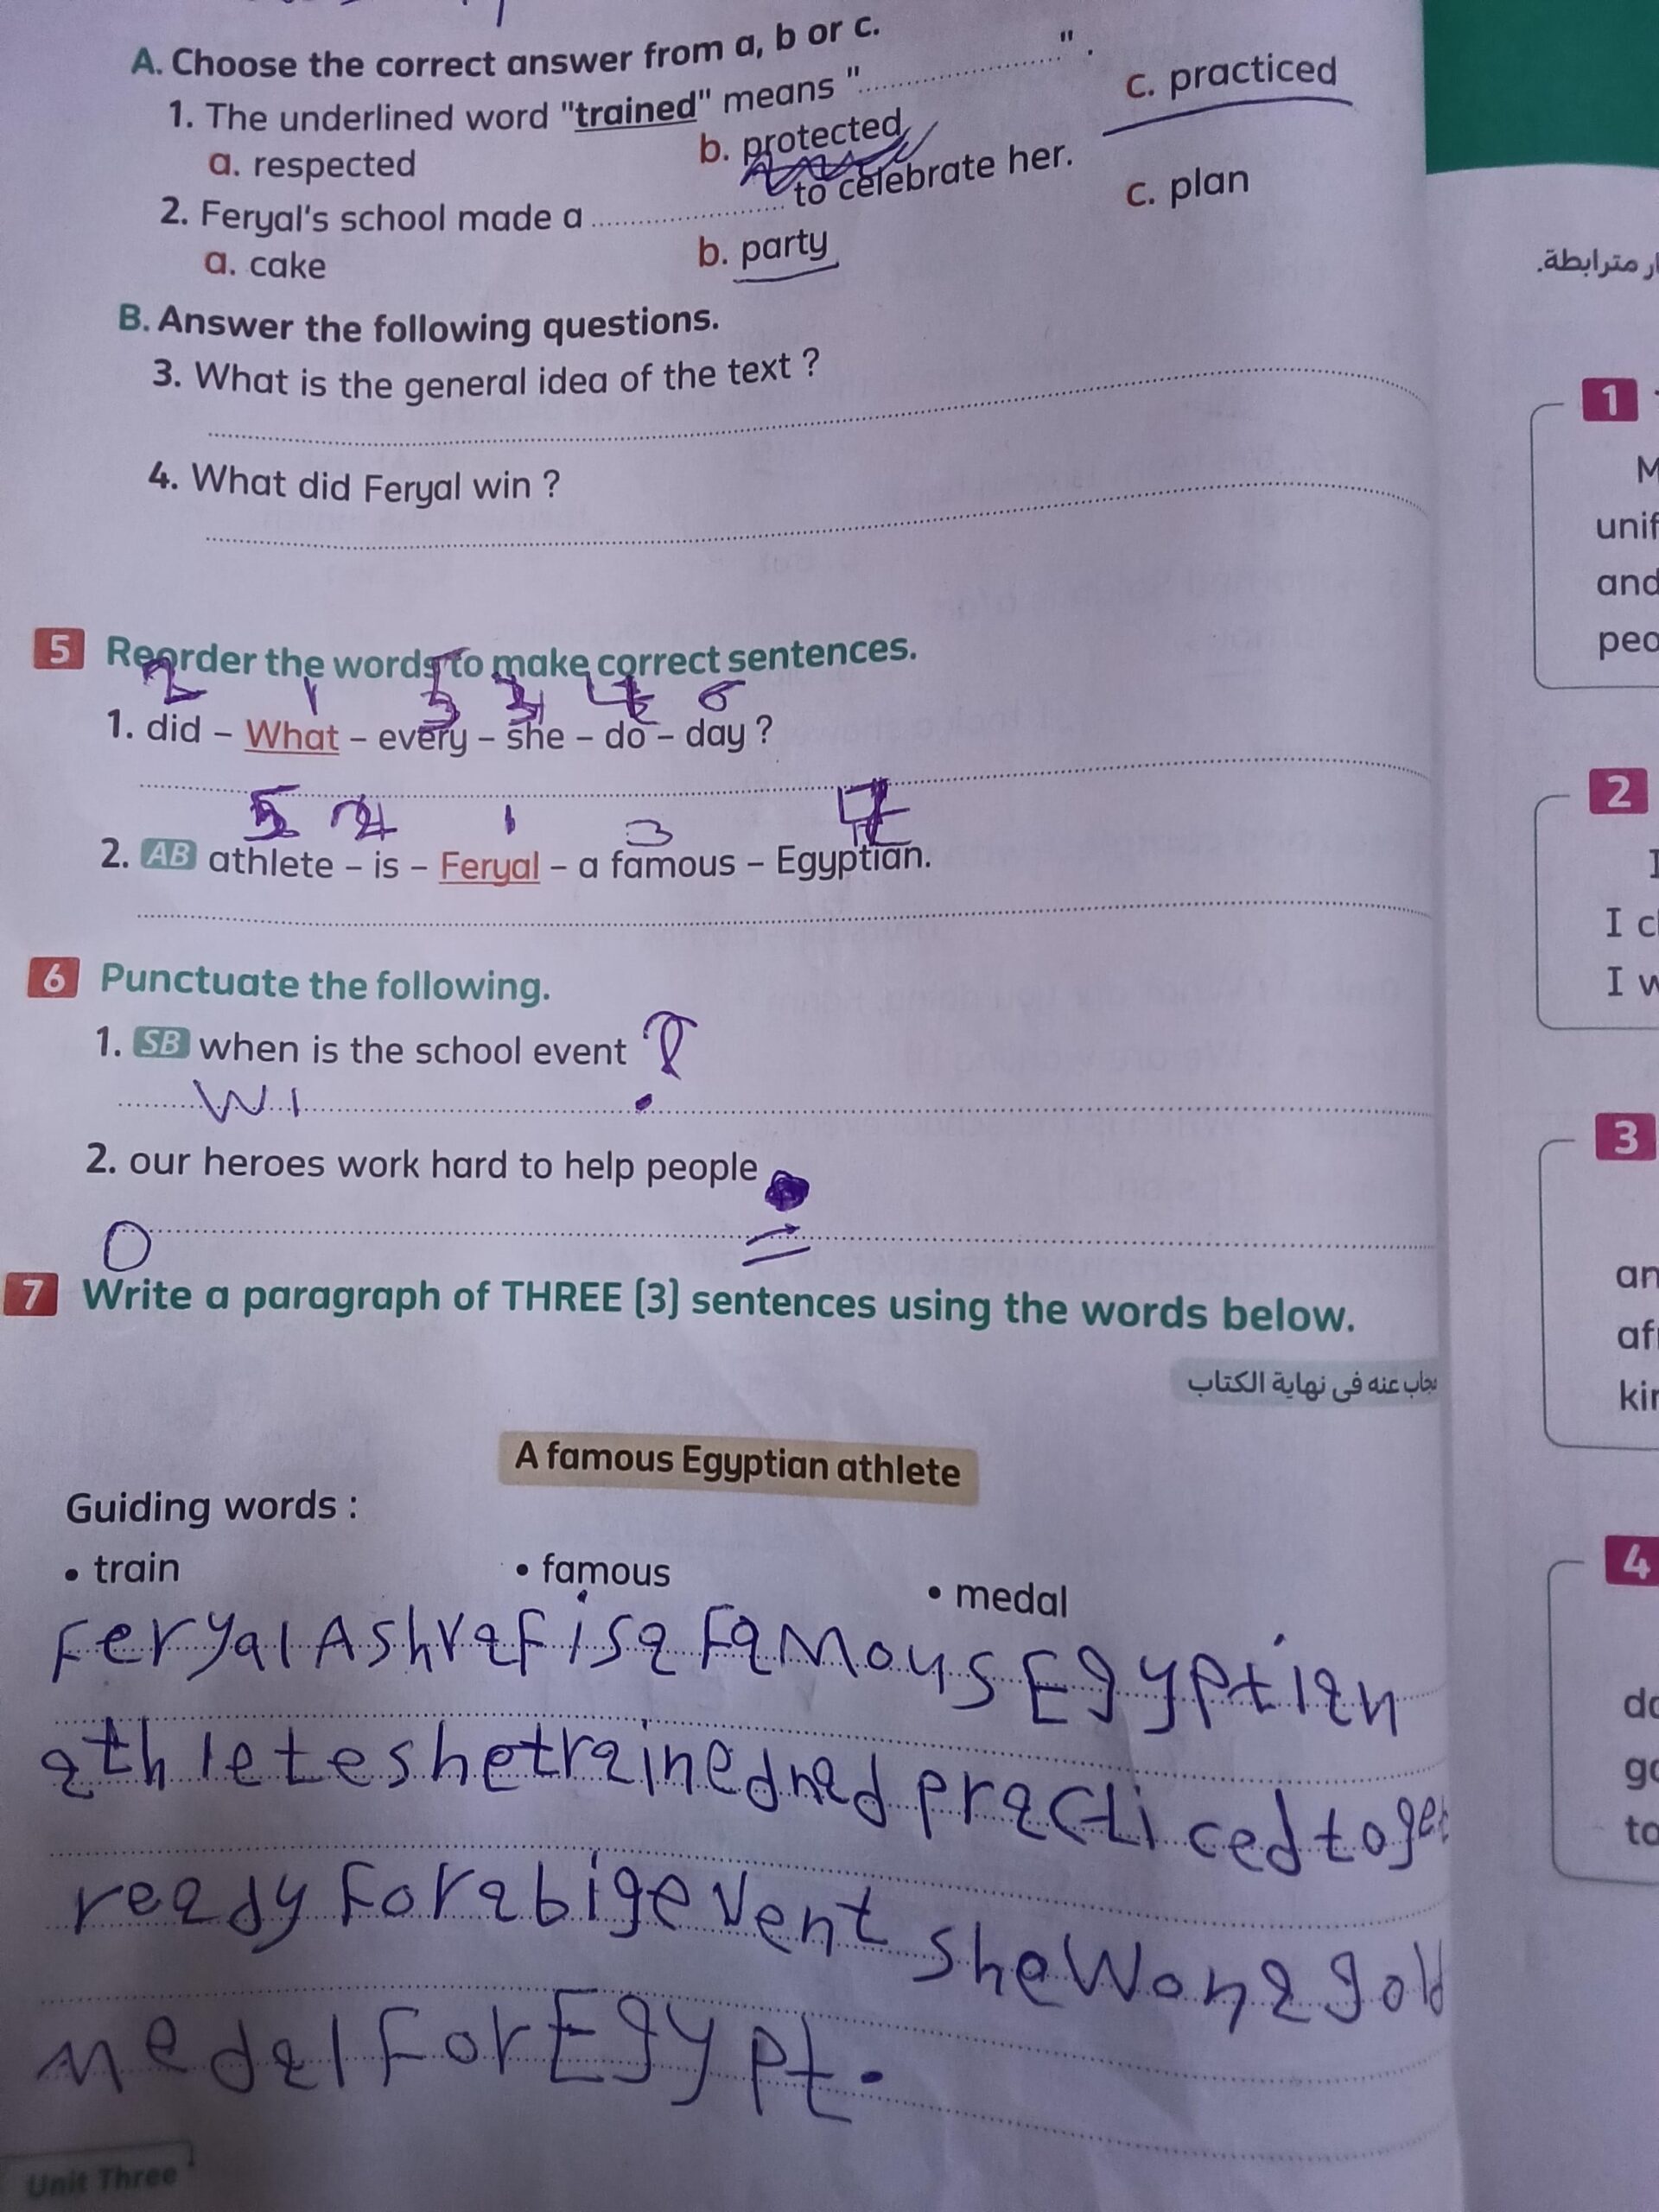 A. Choose the correct answer from a, b or c.
1. The underlined word "trained" means "....................".
a. respected
b. protected
c. practiced
2. Feryal's school made a .................... to celebrate her.
a. cake
b. party
c. plan
B. Answer the following questions.
3. What is the general idea of the text ?
4. What did Feryal win ?
5 Reorder the words to make correct sentences.
2 1 5 3 4 6
1. did – What – every – she – do – day ?
5 2 1 3 4
2. AB athlete – is – Feryal – a famous – Egyptian.
6 Punctuate the following.
1. SB when is the school event ?
W
2. our heroes work hard to help people .
O
7 Write a paragraph of THREE (3) sentences using the words below.
يجاب عنه فى نهاية الكتاب
A famous Egyptian athlete
Guiding words :
• train • famous • medal
Feryal Ashraf is a Famous Egyptian
athlete she trained nad practiced to get
ready For a big event she Won a gold
medal For Egypt.
Unit Three
ار مترابطة.
1
M
unif
and
peo
2
I
I cl
I w
3
an
af
kin
4
do
go
to